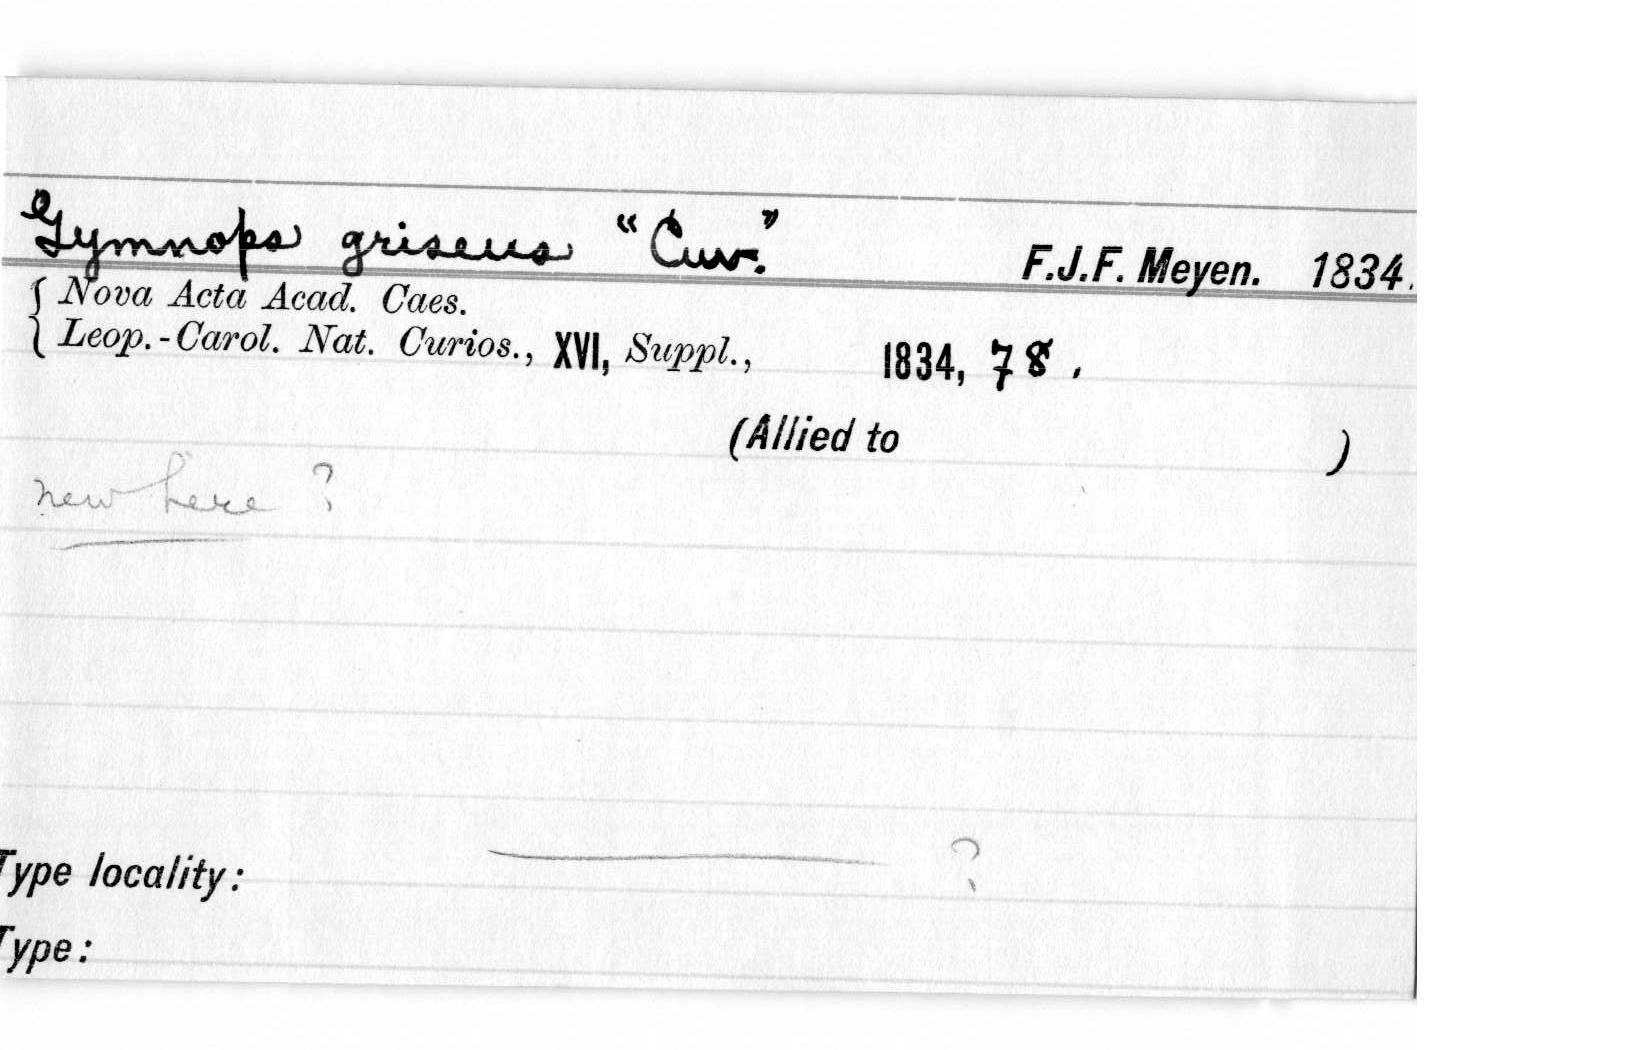 Gymnops griseus "Cuv." F.J.F. Meyen. 1834.
{ Nova Acta Acad. Caes.
{ Leop.-Carol. Nat. Curios., XVI, Suppl., 1834, 78.
(Allied to )
new here ?
Type locality: ——— ?
Type: